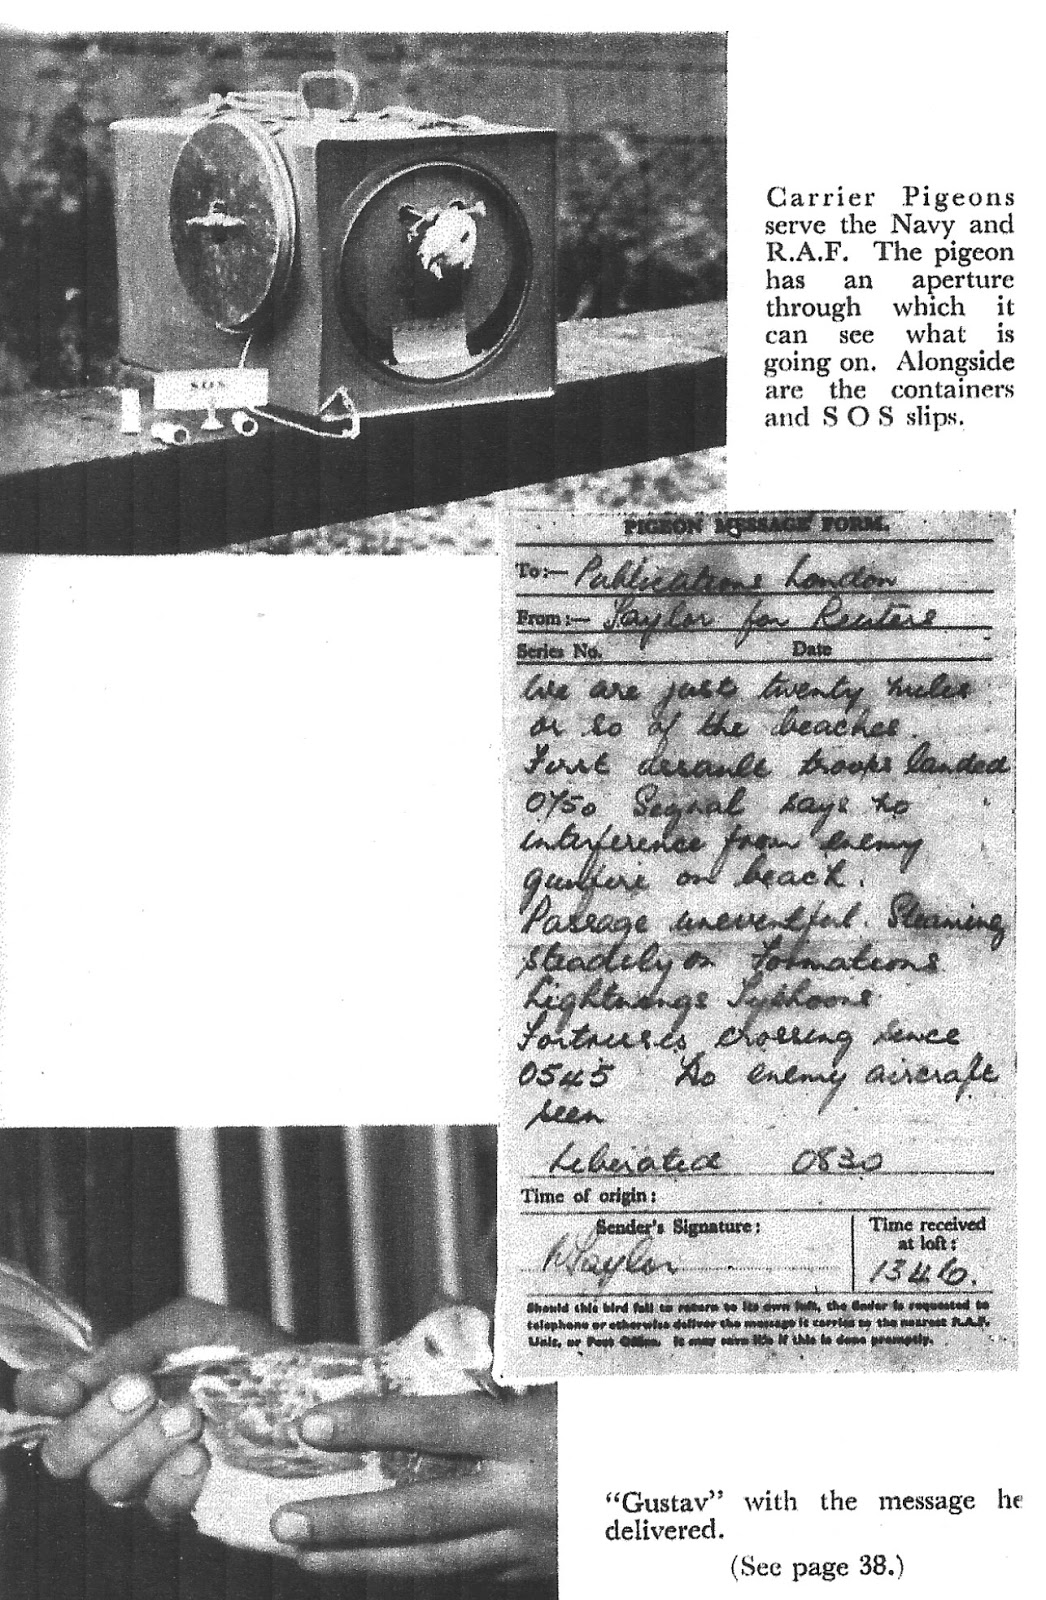 Carrier Pigeons
serve the Navy and
R.A.F. The pigeon
has an aperture
through which it
can see what is
going on. Alongside
are the containers
and S O S slips.
SOS
PIGEON MESSAGE FORM.
To:— Publications London
From:— Taylor for Reuters
Series No. Date
We are just twenty miles
or so of the beaches.
First assault troops landed
0750 Signal says no
interference from enemy
gunfire on beach.
Passage uneventful. Steaming
steadily on Formations
Lightnings Typhoons
Fortresses crossing since
0545 No enemy aircraft
seen
Liberated 0830
Time of origin:
Sender's Signature: Time received
at loft:
Taylor 1346.
Should this bird fail to return to its own loft, the finder is requested to
telephone or otherwise deliver the message it carries to the nearest R.A.F.
Unit, or Post Office. It may save life if this is done promptly.
"Gustav" with the message he
delivered.
(See page 38.)